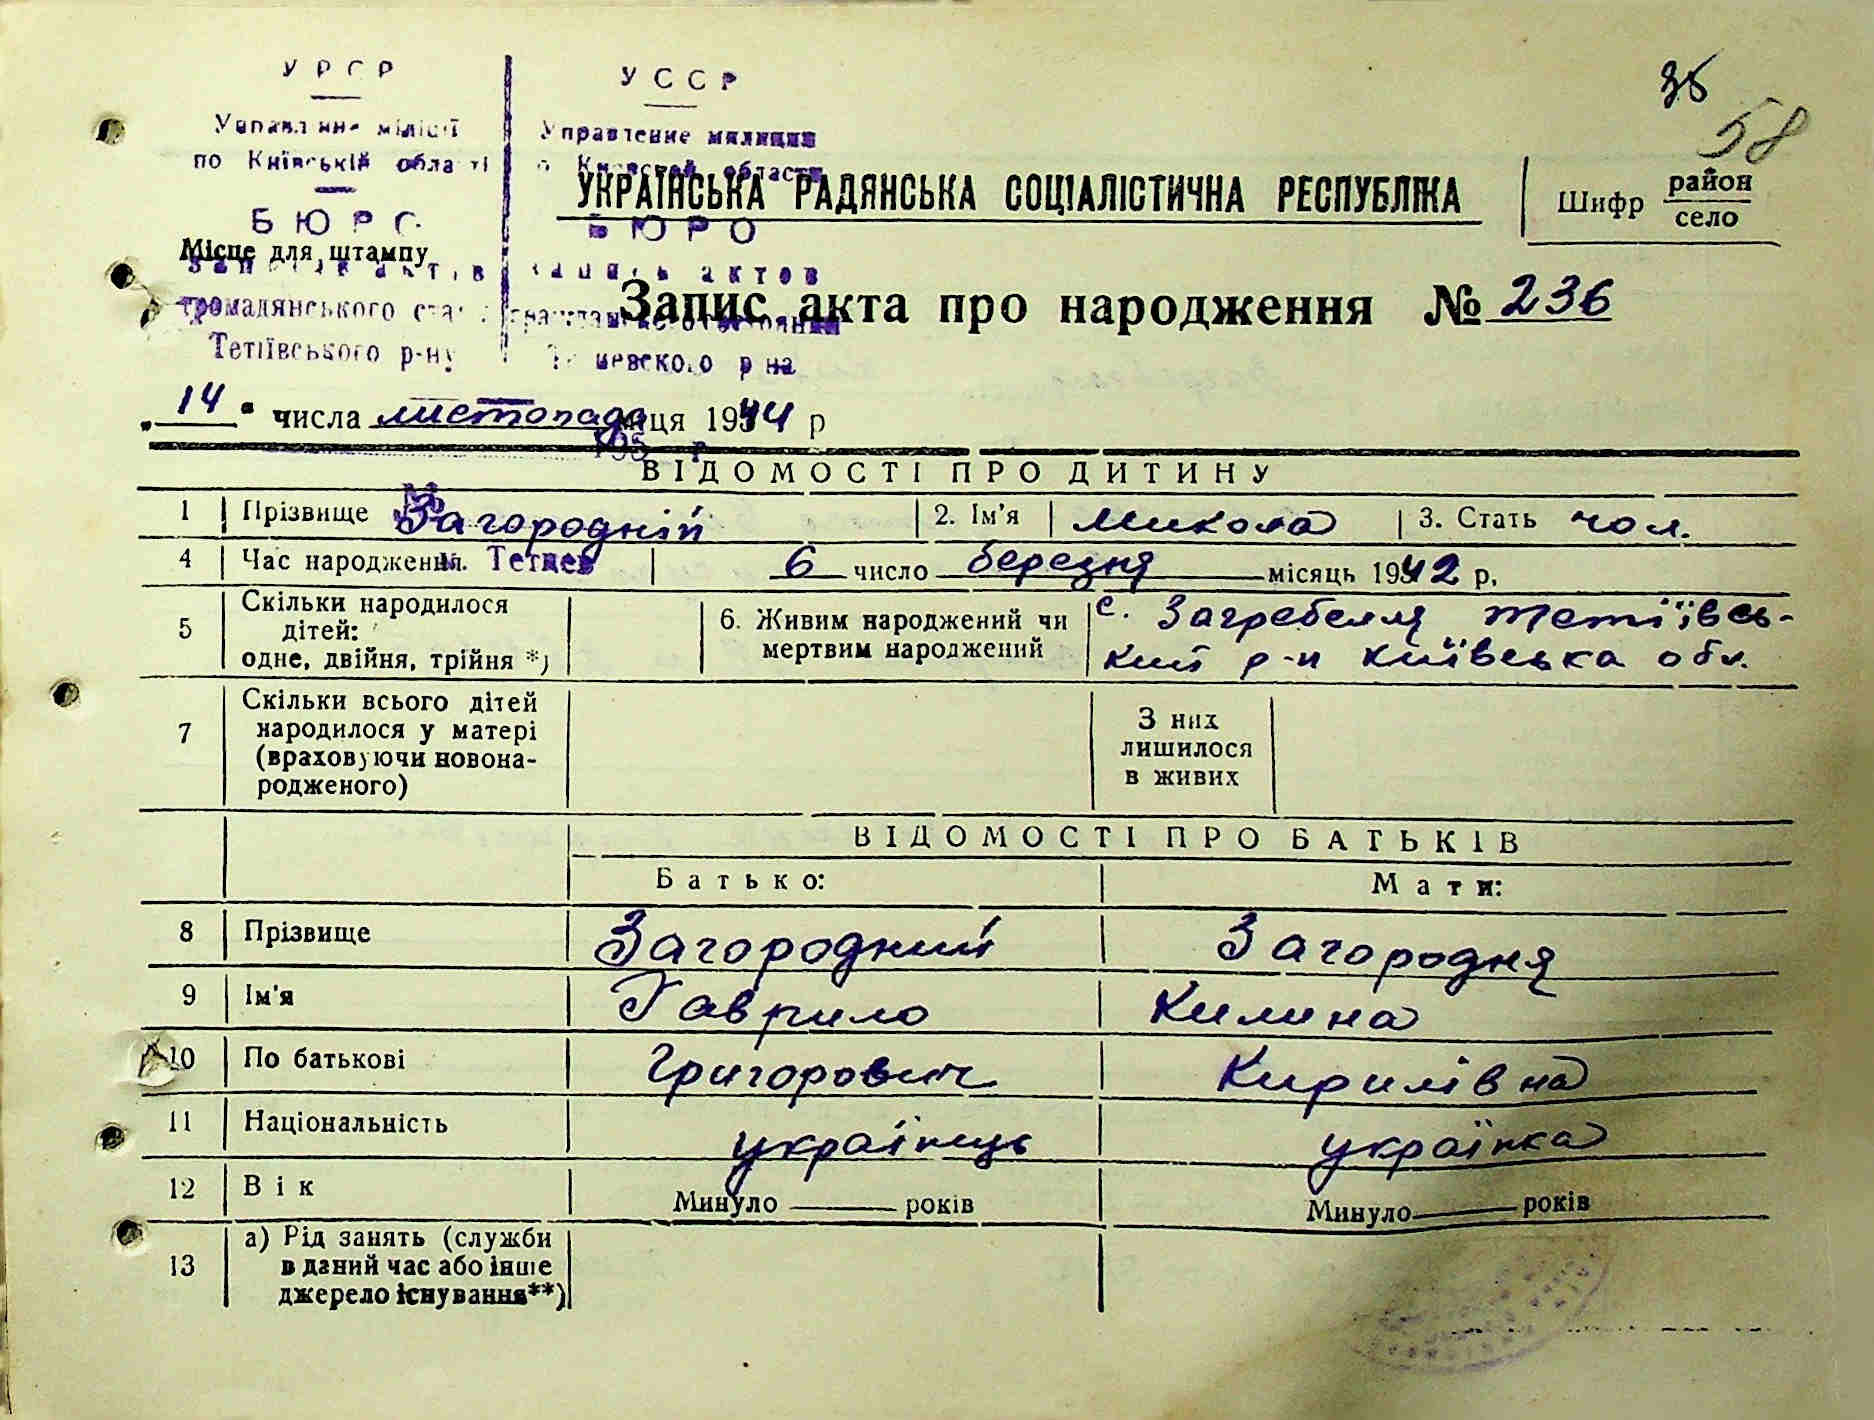 У Р С Р
Управління міліції
по Київській області
Б Ю Р О
записів актів
громадянського стану
Тетіївського р-ну
У С С Р
Управление милиции
по Киевской области
Б Ю Р О
записи актов
гражданского состояния
Тетиевского р на
195 р
м. Тетиев
Місце для штампу
36
58
УКРАЇНСЬКА РАДЯНСЬКА СОЦІАЛІСТИЧНА РЕСПУБЛІКА
Шифр район
село
Запис акта про народження № 236
„14" числа листопада місяця 1944 р
ВІДОМОСТІ ПРО ДИТИНУ
1 Прізвище Загородній 2. Ім'я Микола 3. Стать чол.
4 Час народження 6 число березня місяць 1942 р,
5 Скільки народилося
дітей:
одне, двійня, трійня *)
6. Живим народжений чи
мертвим народжений
с. Загребелля Тетіївсь-
кий р-н Київська обл.
7 Скільки всього дітей
народилося у матері
(враховуючи новона-
родженого)
З них
лишилося
в живих
ВІДОМОСТІ ПРО БАТЬКІВ
Батько: Мати:
8 Прізвище Загородний Загородня
9 Ім'я Гаврило Килина
10 По батькові Григорович Кирилівна
11 Національність українець українка
12 Вік Минуло років Минуло років
13 а) Рід занять (служби
в даний час або інше
джерело існування**)